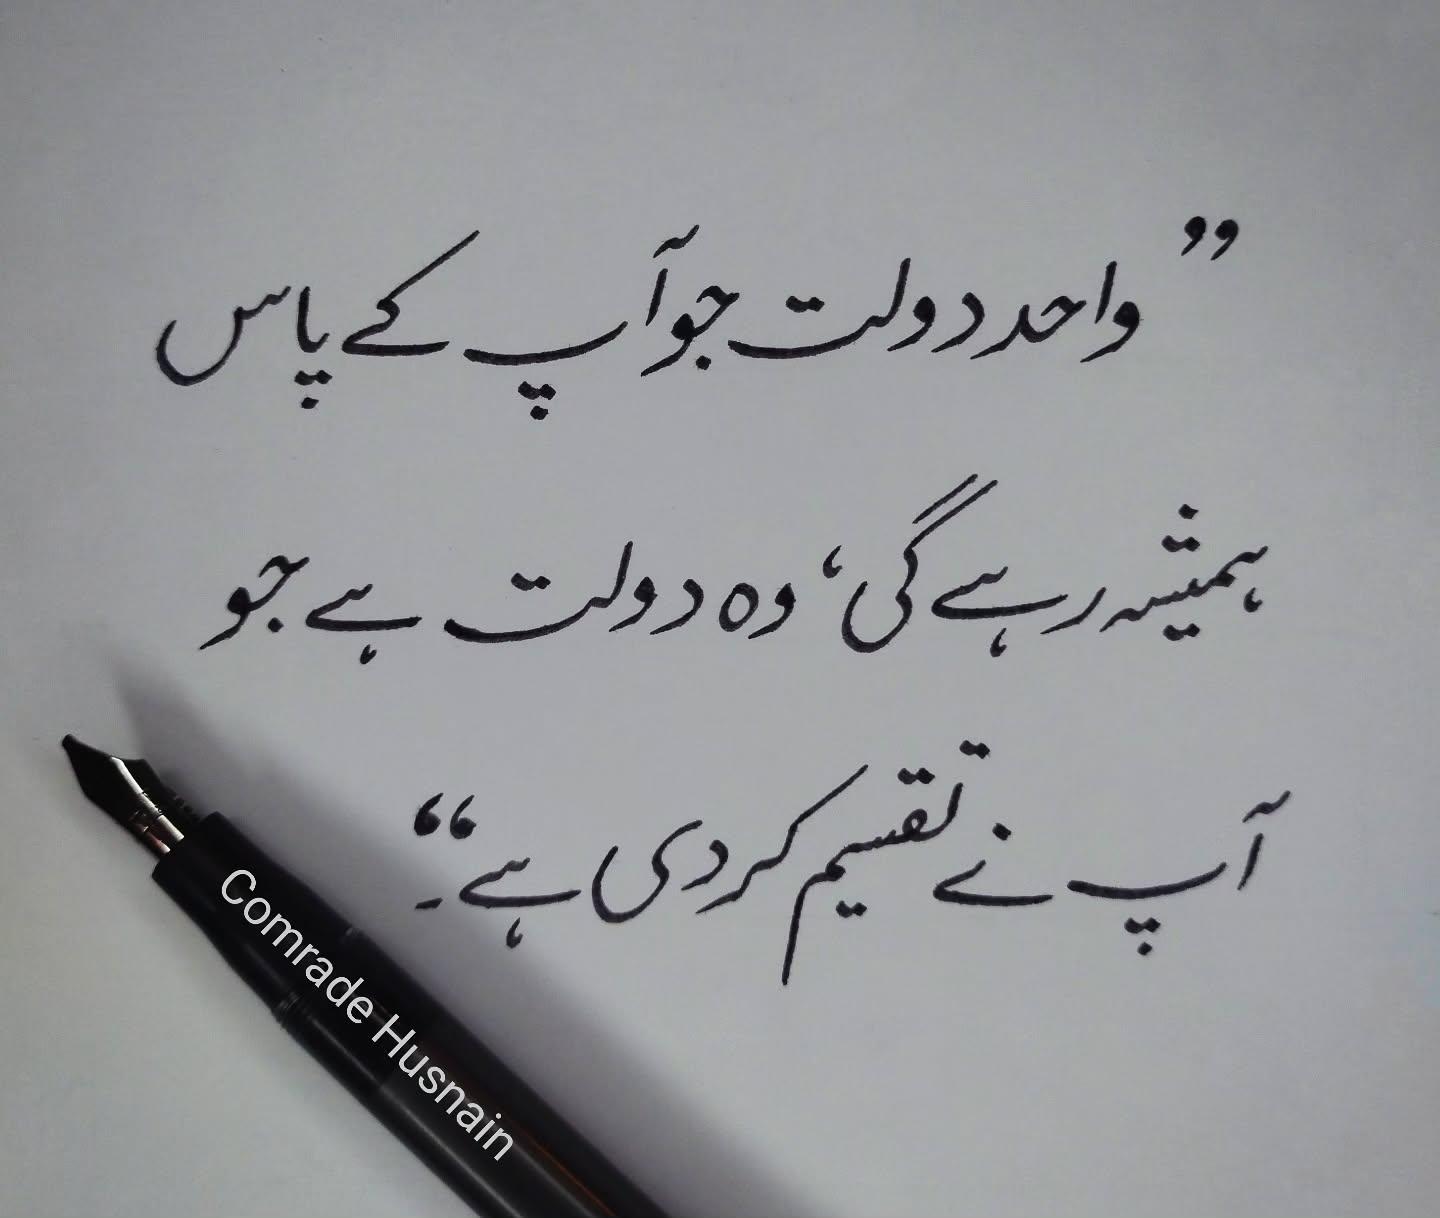 ”واحد دولت جو آپ کے پاس
ہمیشہ رہے گی، وہ دولت ہے جو
آپ نے تقسیم کر دی ہے۔“
Comrade Husnain